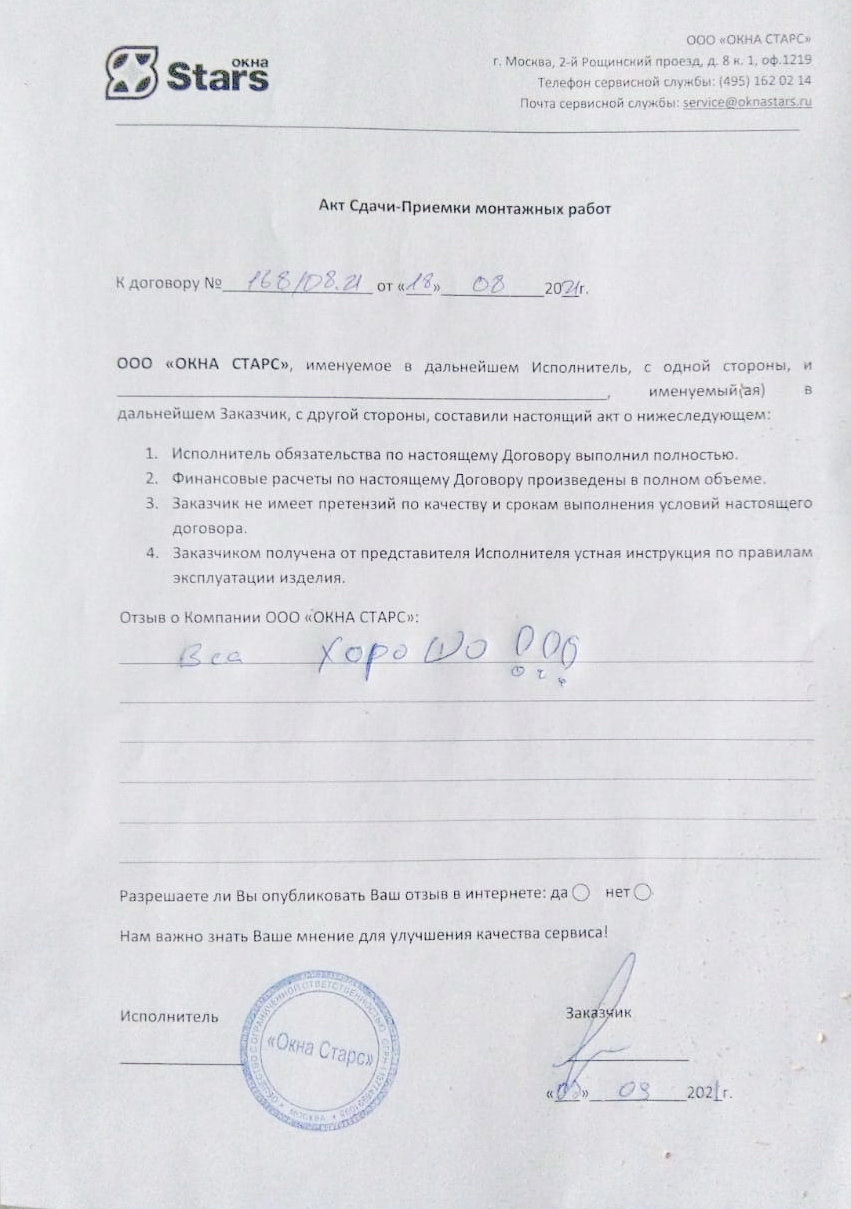 ОКНА
Stars
ООО «ОКНА СТАРС»
г. Москва, 2-й Рощинский проезд, д. 8 к. 1, оф.1219
Телефон сервисной службы: (495) 162 02 14
Почта сервисной службы: service@oknastars.ru
Акт Сдачи-Приемки монтажных работ
К договору № 168/08.21 от «18» 08 2021г.
ООО «ОКНА СТАРС», именуемое в дальнейшем Исполнитель, с одной стороны, и
, именуемый(ая) в
дальнейшем Заказчик, с другой стороны, составили настоящий акт о нижеследующем:
1. Исполнитель обязательства по настоящему Договору выполнил полностью.
2. Финансовые расчеты по настоящему Договору произведены в полном объеме.
3. Заказчик не имеет претензий по качеству и срокам выполнения условий настоящего
договора.
4. Заказчиком получена от представителя Исполнителя устная инструкция по правилам
эксплуатации изделия.
Отзыв о Компании ООО «ОКНА СТАРС»:
Все Хорошо
Разрешаете ли Вы опубликовать Ваш отзыв в интернете: да нет
Нам важно знать Ваше мнение для улучшения качества сервиса!
Исполнитель
Заказчик
ОБЩЕСТВО С ОГРАНИЧЕННОЙ ОТВЕТСТВЕННОСТЬЮ
«Окна Старс»
МОСКВА
09 2021г.